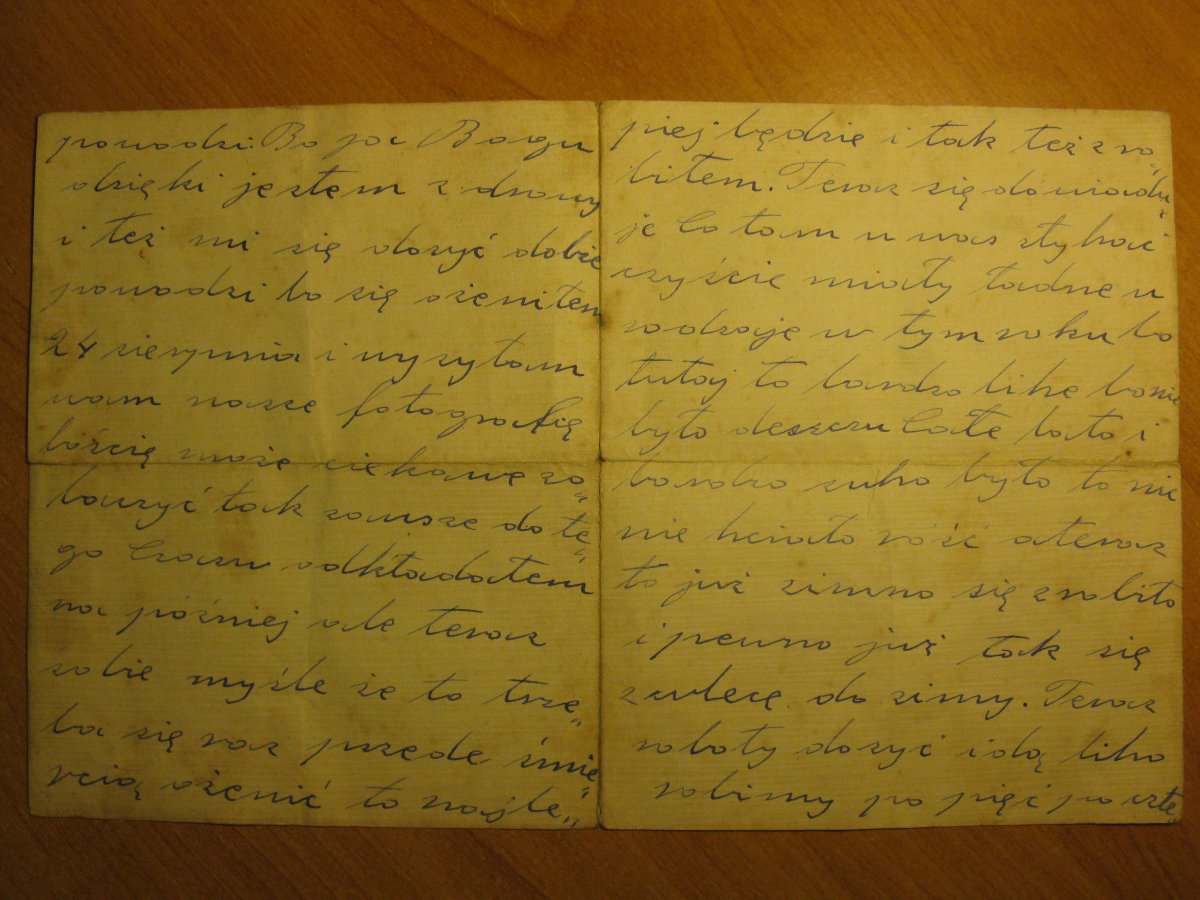 powodzi. Bo ja Bogu
dzięki jestem zdrowy
i też mi się dosyć dobże
powodzi bo się ożeniłem
24 sierpnia i wysyłam
wam nasze fotografię
bóście może ciekawe zo„
baczyć tak zawsze do te„
go Czasu odkładałem
na później ale teraz
sobie myśle że to trze„
ba się raz przede śmie„
rcią ożenić to najle„
piej będzie i tak też zro„
biłem. Teraz się dowiadu„
je Co tam u was słyhać
czyście miały ładne u
rodzaje w tym roku bo
tutaj to bardzo lihe bo nie
było deszczu Całe lato i
bardzo suho było to nic
nie hciało róść a teraz
to już zimno się zrobiło
i pewno już tak się
zwlece do zimy. Teraz
roboty dosyć idą liho
robimy po pięć po czte„